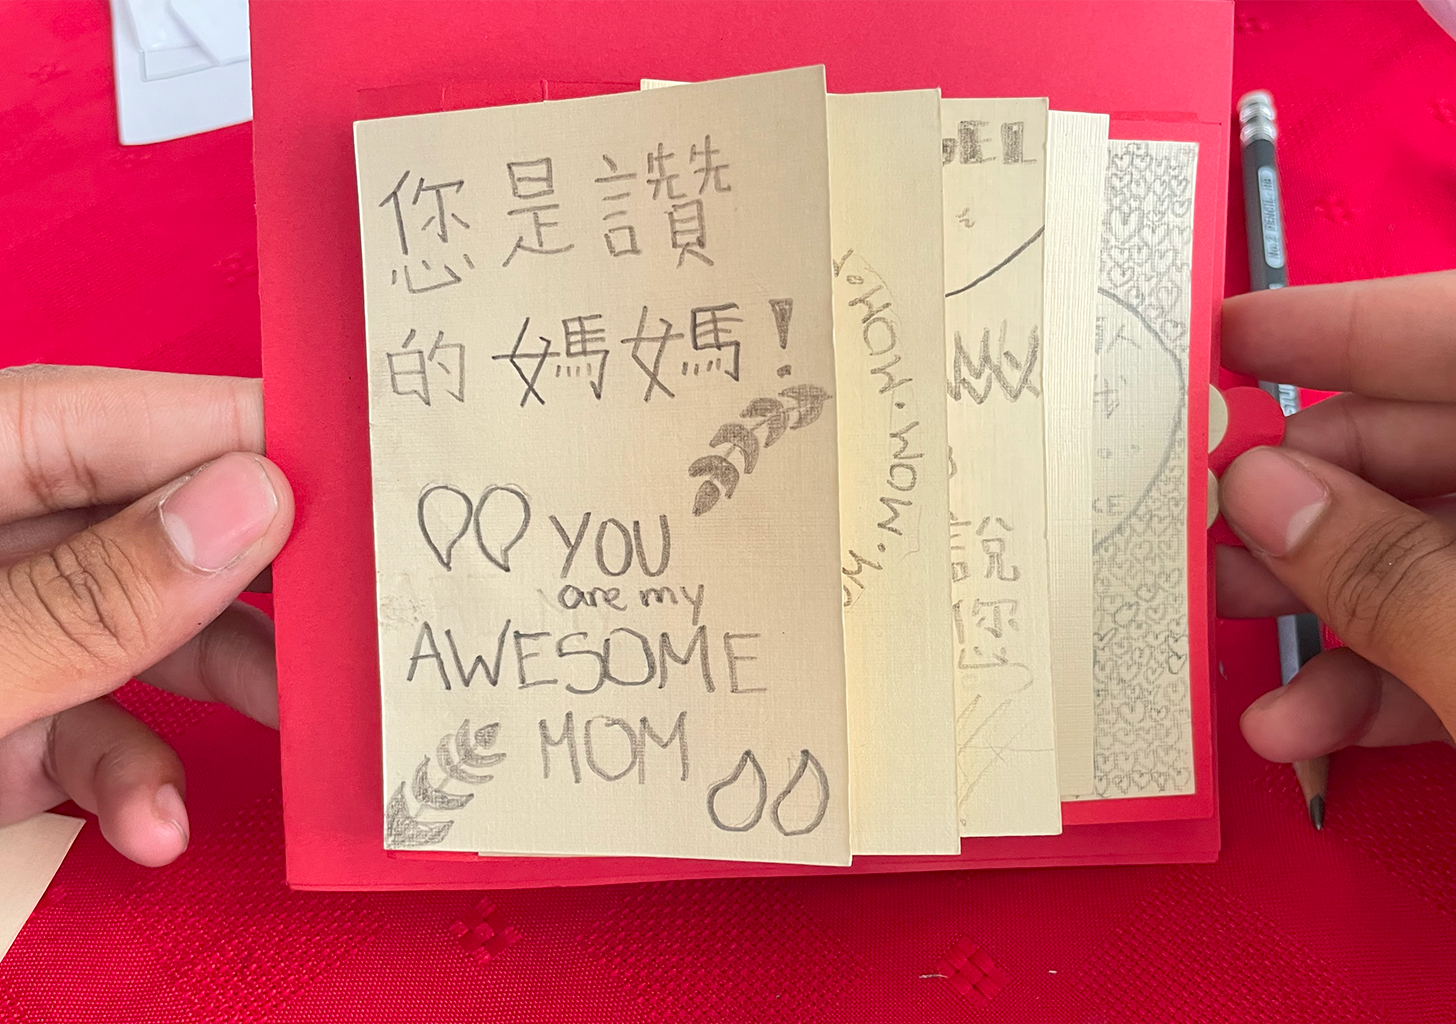 您是讚
的媽媽!
YOU
are my
AWESOME
MOM
MOM. MOM.
說
你
No.2 PENCIL